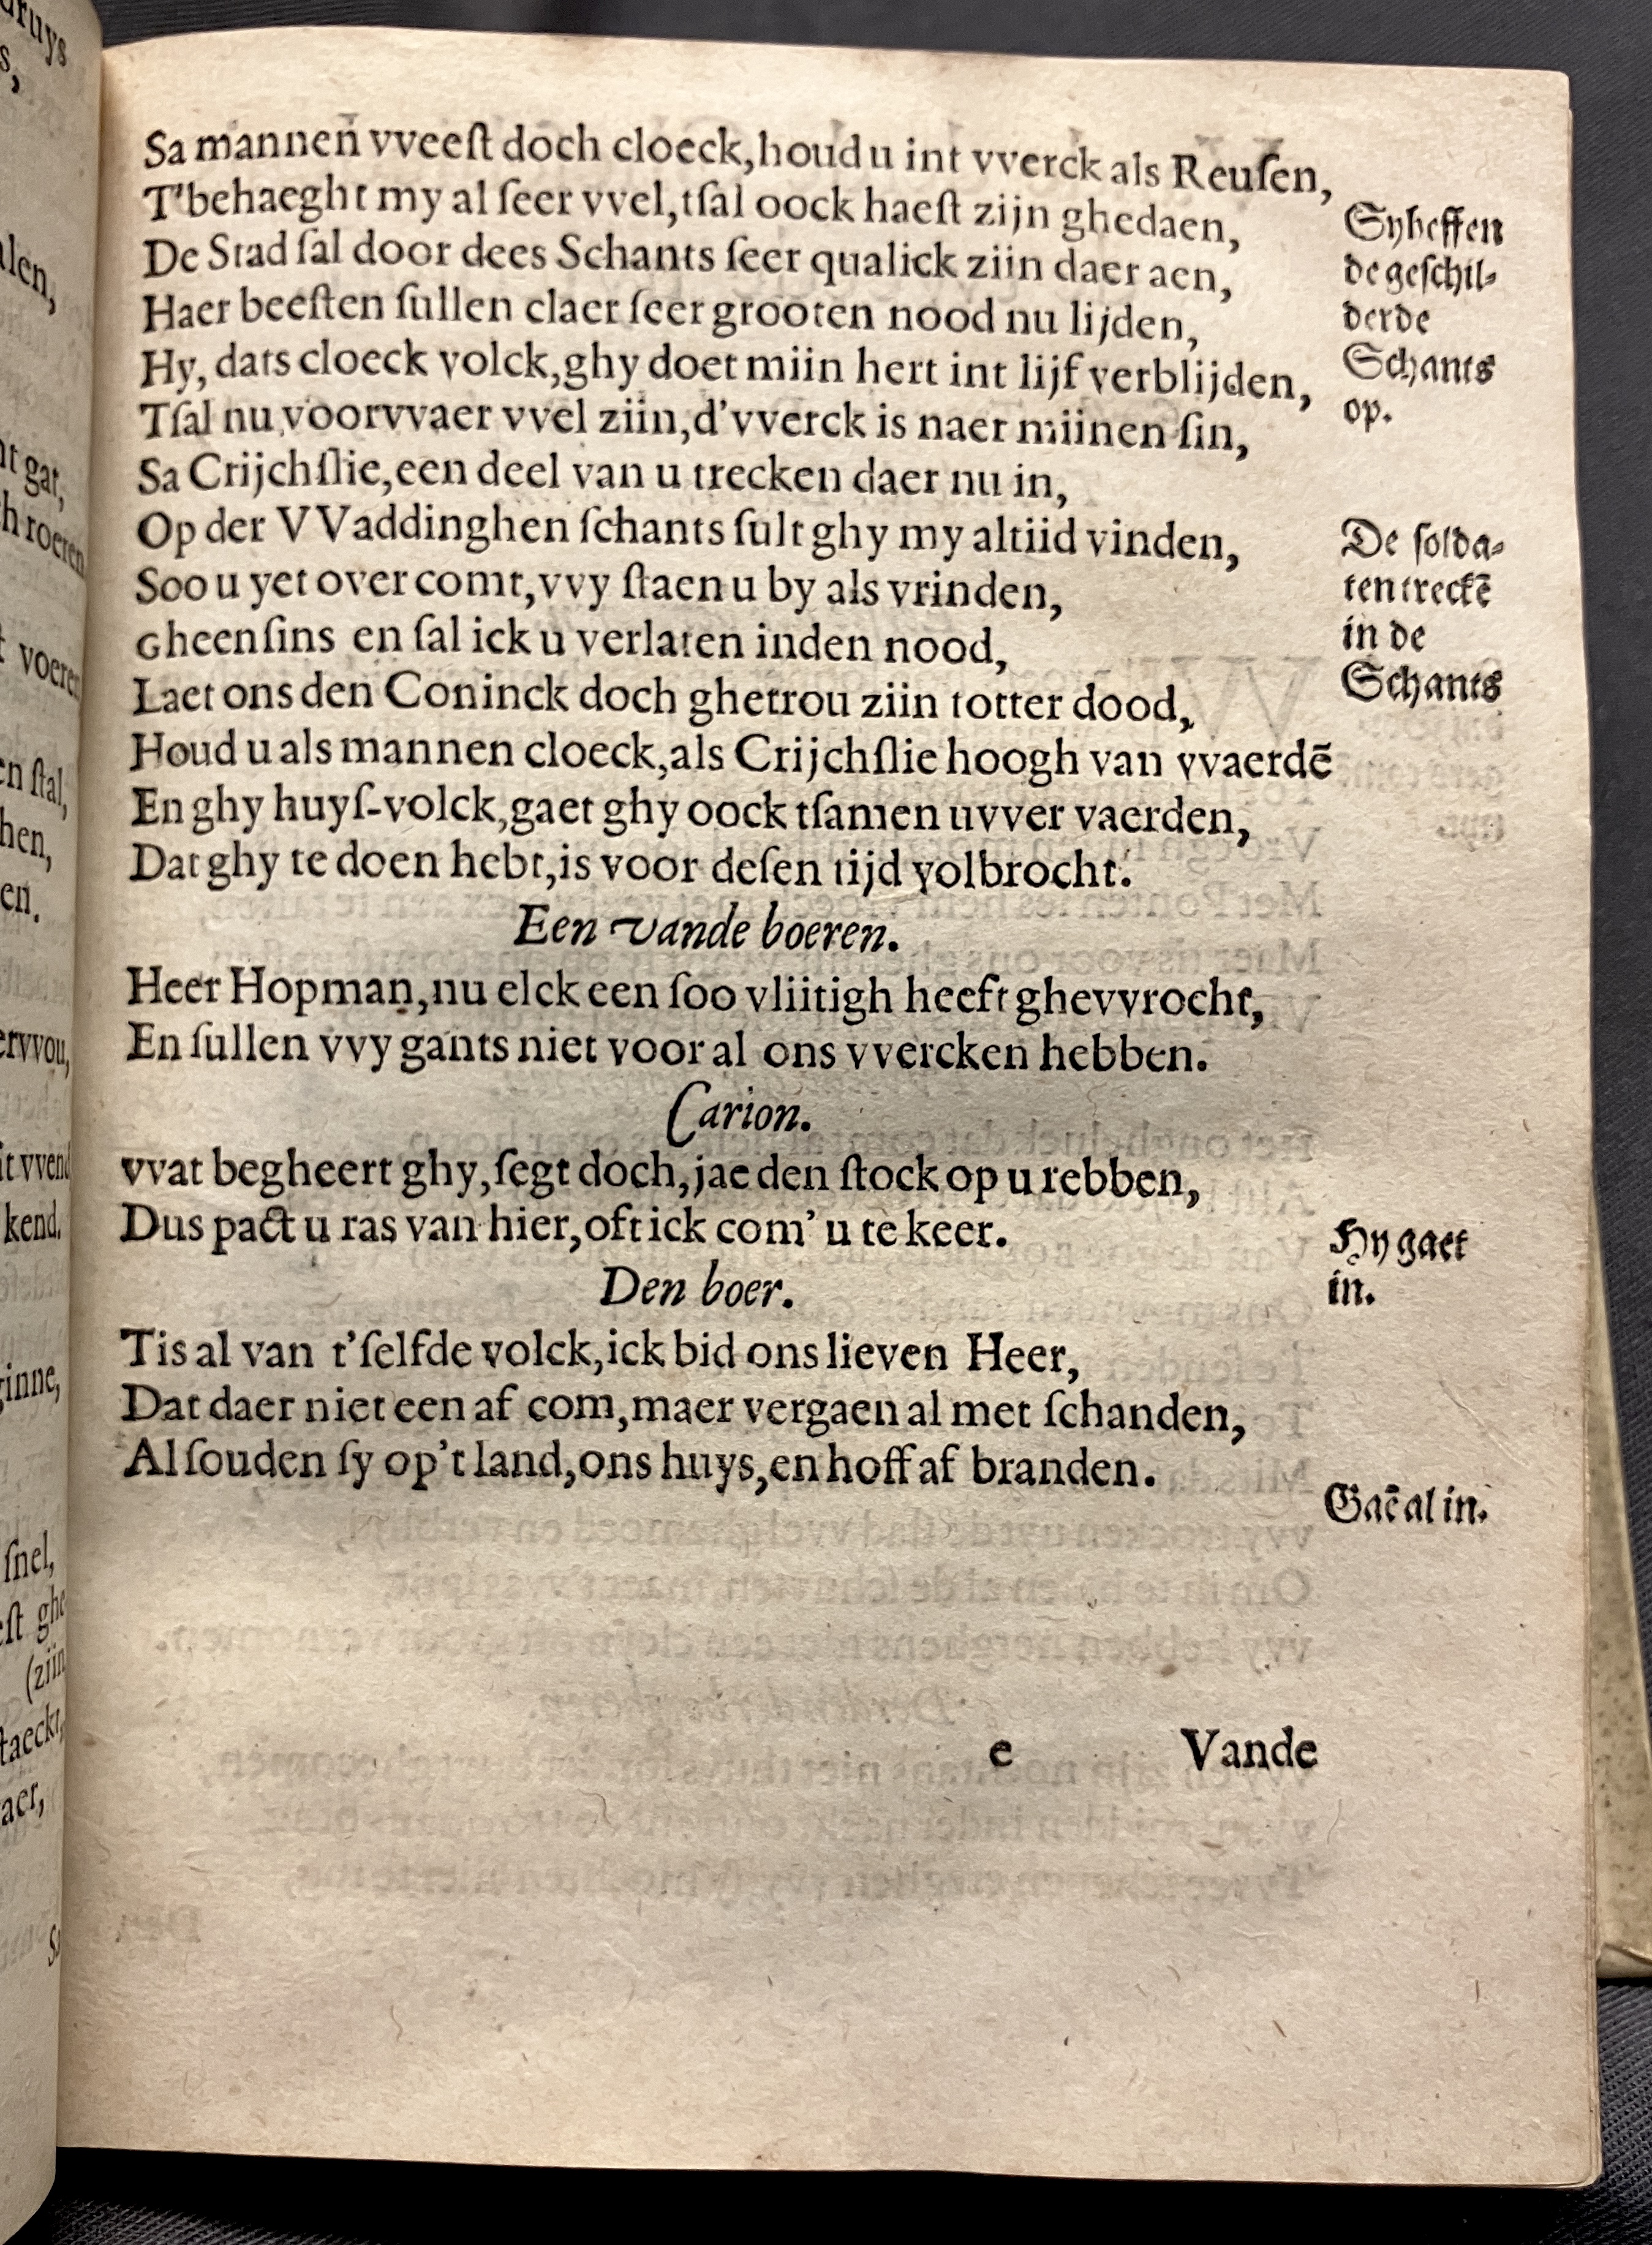 Sa mannen vveeſt doch cloeck, houd u int vverck als Reuſen,
T'behaeght my al ſeer vvel, tſal oock haeſt zijn ghedaen,
De Stad ſal door dees Schants ſeer qualick ziin daer aen,
Haer beeſten ſullen claer ſeer grooten nood nu lijden,
Hy, dats cloeck volck, ghy doet miin hert int lijf verblijden,
Tſal nu voorvvaer vvel ziin, d'vverck is naer miinen ſin,
Sa Crijchſlie, een deel van u trecken daer nu in,
Op der VVaddinghen ſchants ſult ghy my altiid vinden,
Soo u yet over comt, vvy ſtaen u by als vrinden,
Gheenſins en ſal ick u verlaten inden nood,
Laet ons den Coninck doch ghetrou ziin totter dood,
Houd u als mannen cloeck, als Crijchſlie hoogh van vvaerdē
En ghy huyſ-volck, gaet ghy oock tſamen uvver vaerden,
Dat ghy te doen hebt, is voor deſen tijd volbrocht.
Een vande boeren.
Heer Hopman, nu elck een ſoo vliitigh heeft ghevvrocht,
En ſullen vvy gants niet voor al ons vvercken hebben.
Carion.
vvat begheert ghy, ſegt doch, jae den ſtock op u rebben,
Dus pact u ras van hier, oft ick com' u te keer.
Den boer.
Tis al van t'ſelfde volck, ick bid ons lieven Heer,
Dat daer niet een af com, maer vergaen al met ſchanden,
Al ſouden ſy op't land, ons huys, en hoff af branden.
e Vande
Sy heffen
de geſchil-
derde
Schants
op.
De ſolda-
ten treckē
in de
Schants
Hy gaet
in.
Gaē al in.